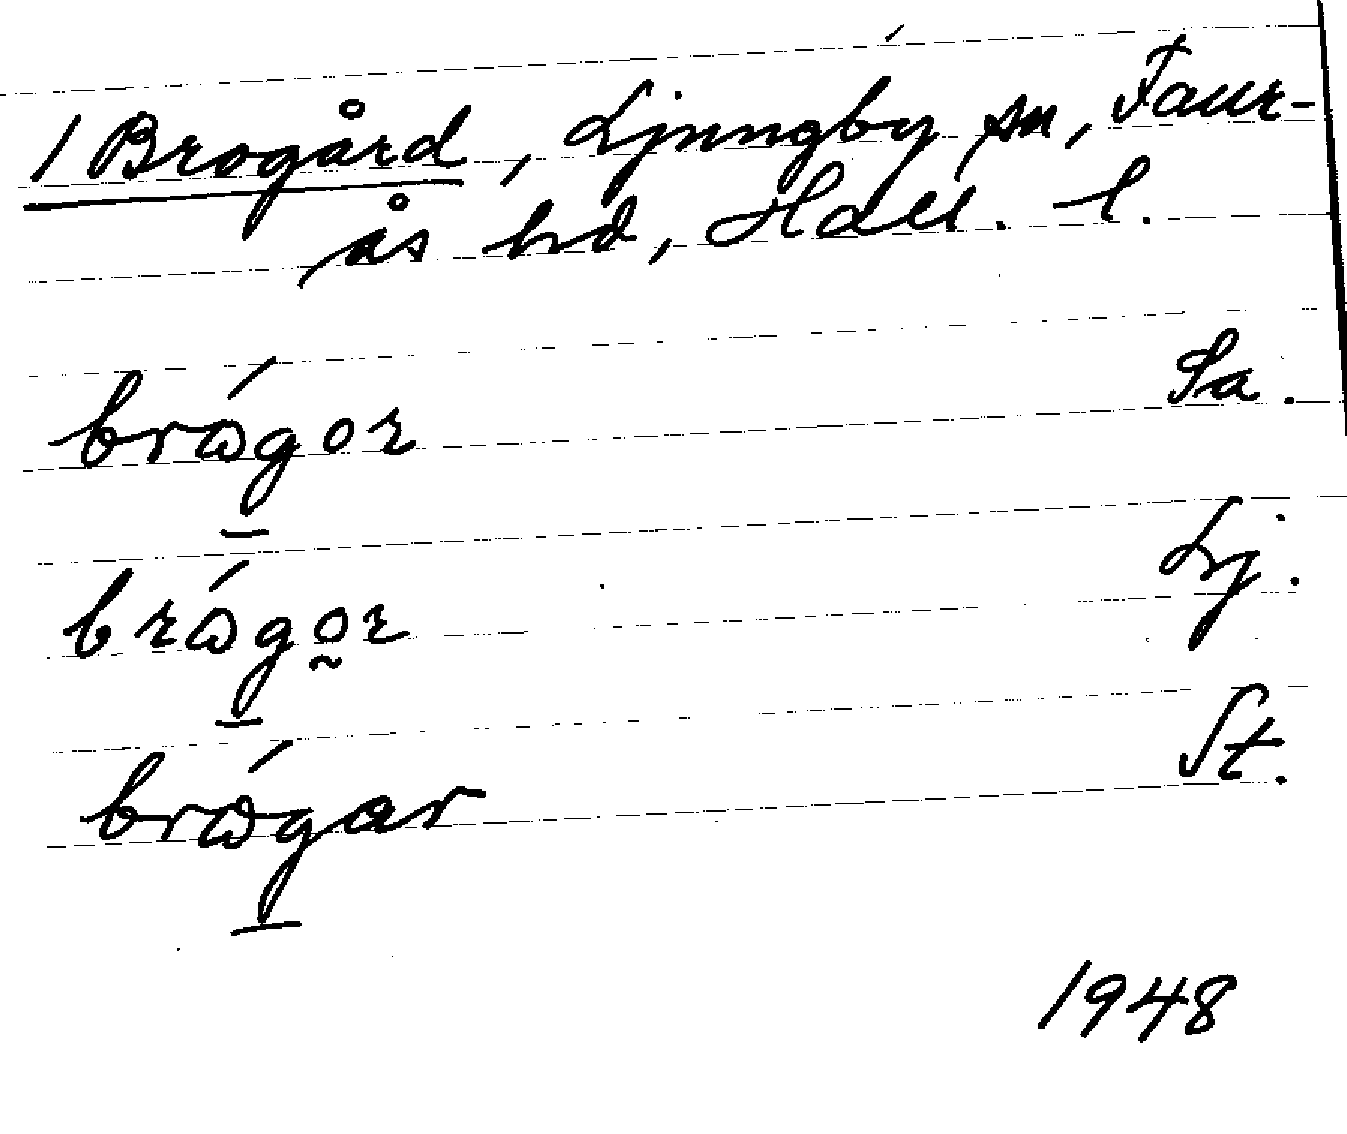 1 Brogård, Ljungby sn, Faur-
ås hd, Hall. l.
brógor Sa.
brógor Lj.
brógar St.
1948